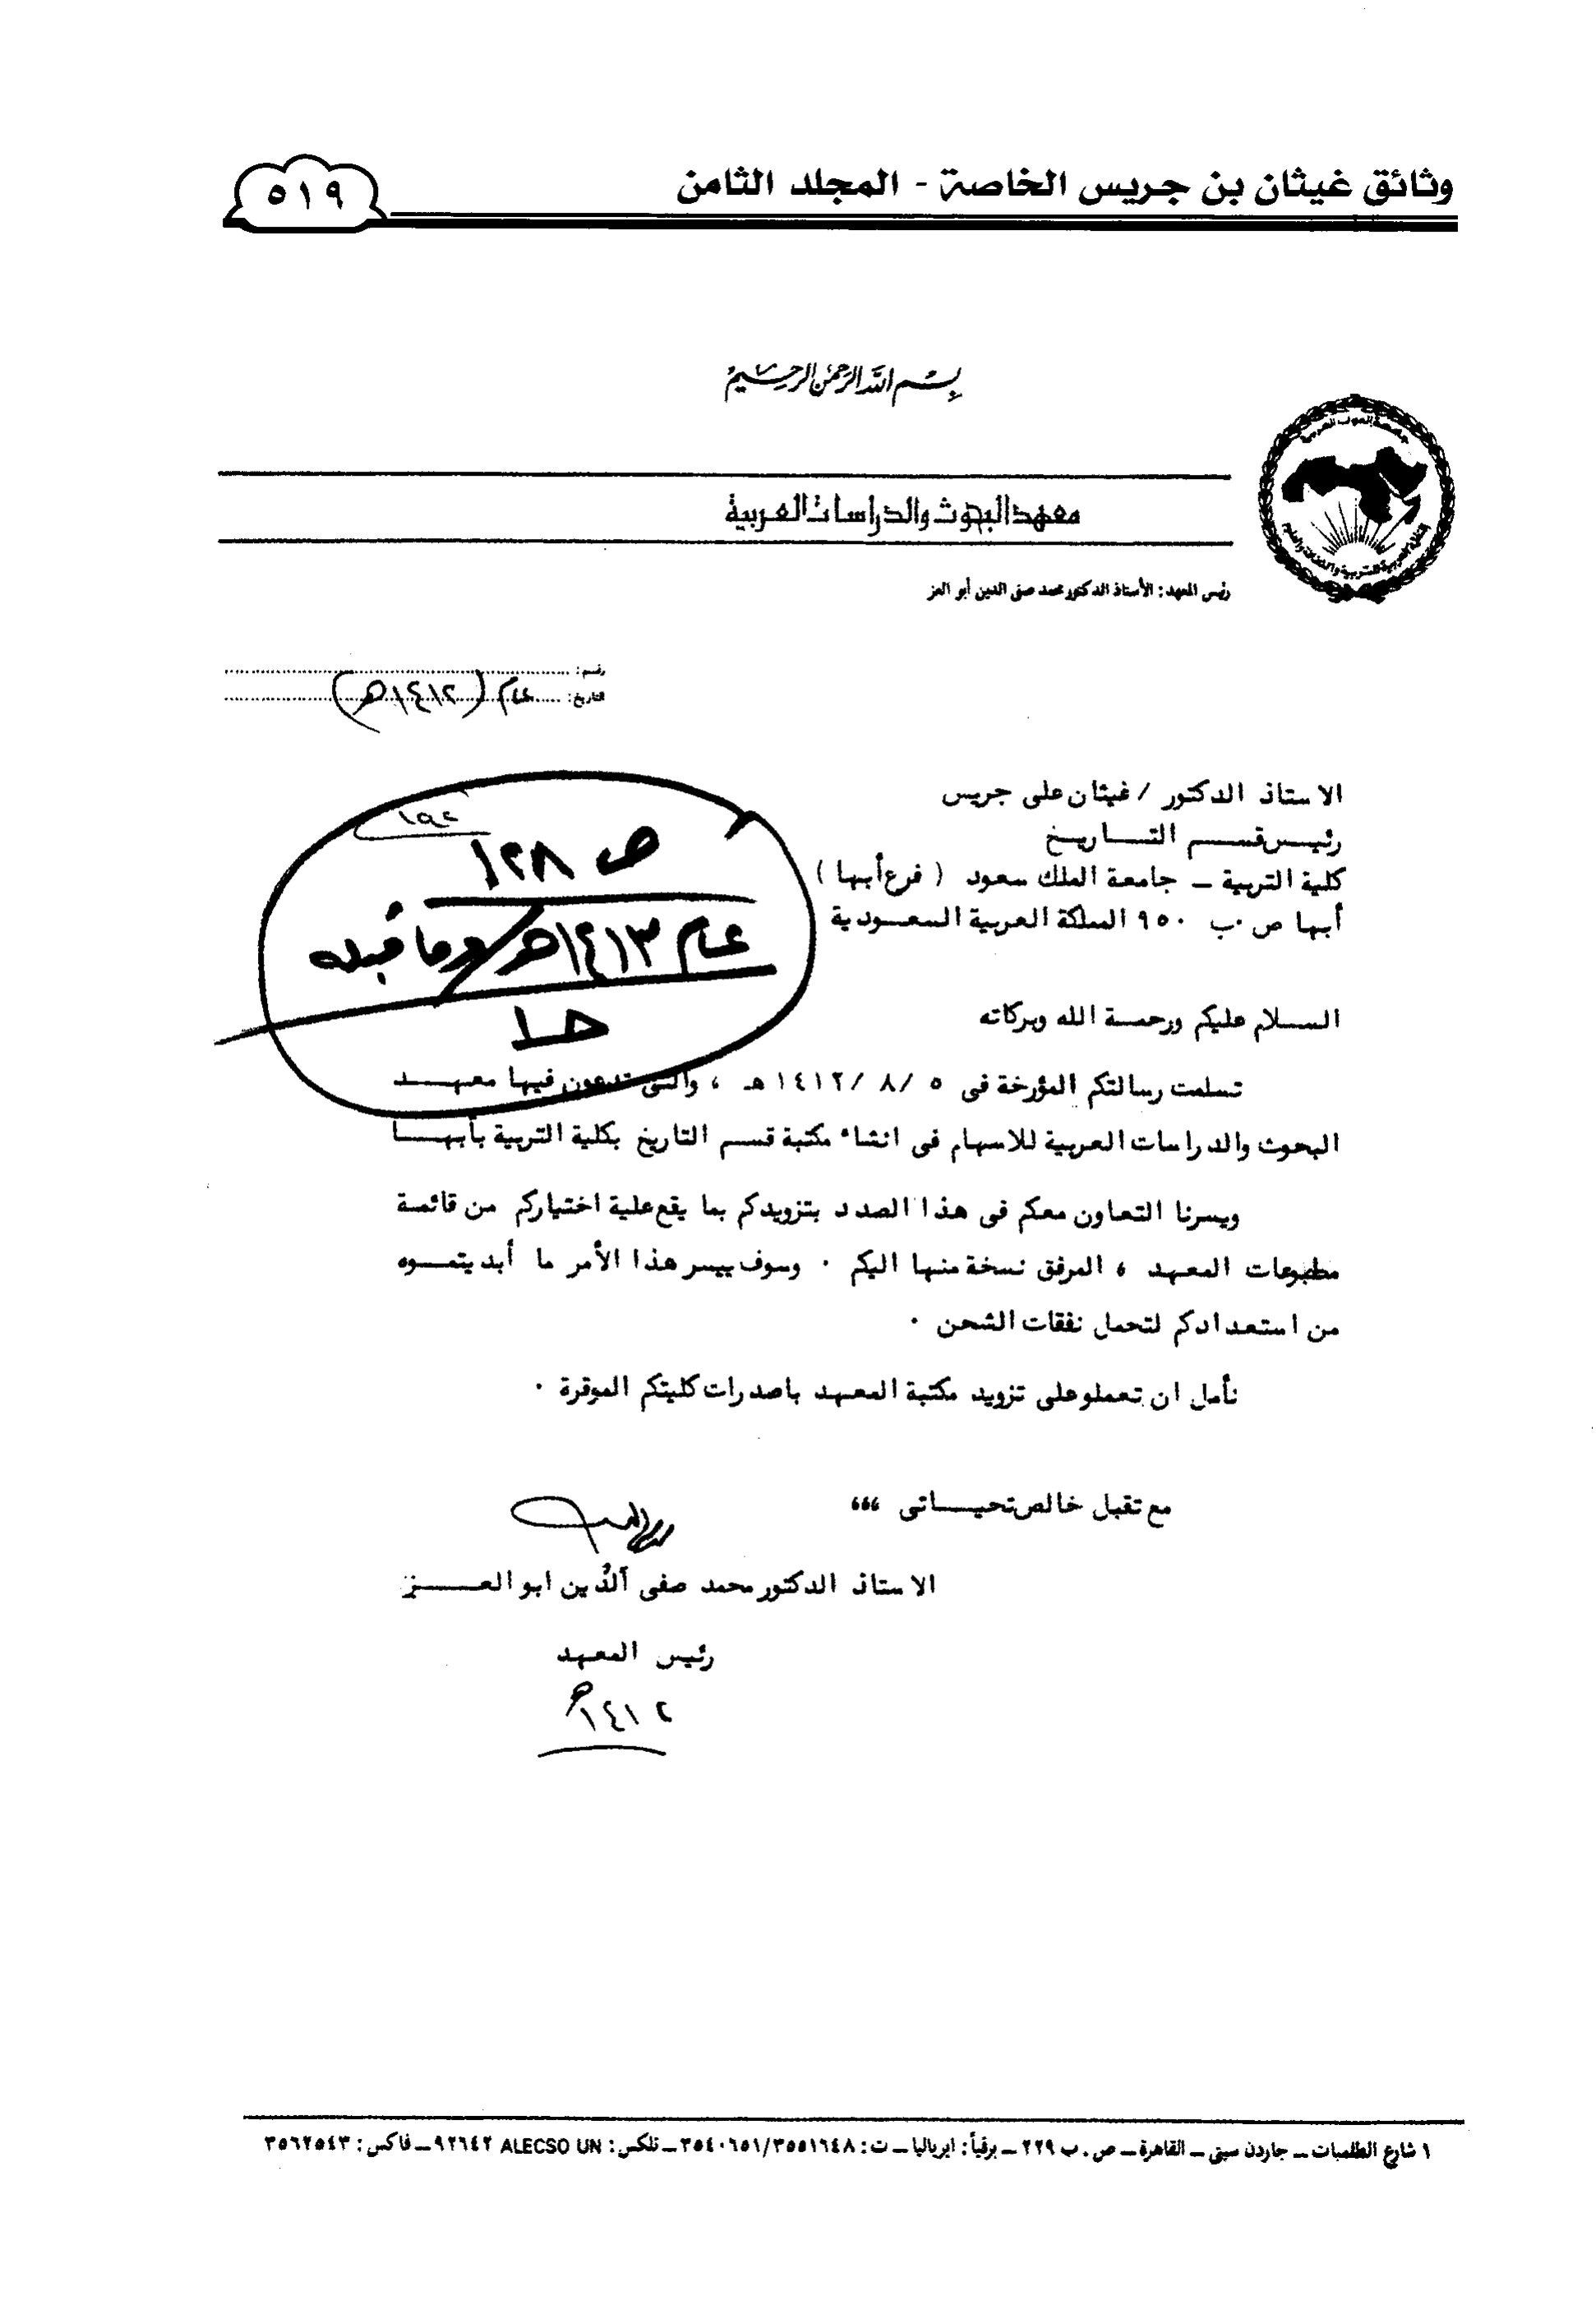 وثائق غيثان بن جريس الخاصة - المجلد الثامن
٥١٩
بسم الله الرحمن الرحيم
جامعة الدول العربية
المنظمة العربية للتربية والثقافة والعلوم
معهد البحوث والدراسات العربية
رئيس المعهد : الأستاذ الدكتور محمد صفى الدين أبو العز
رقم :
التاريخ : عام (١٤١٢هـ)
الاستاذ الدكتور / غيثان على جريس
رئيس قسم التاريخ
كلية التربية – جامعة الملك سعود ( فرع أبها )
أبها ص ٠ب ٩٥٠ المملكة العربية السعودية
ص ١٢٨
عام ١٤١٣هـ وما قبله
السلام عليكم ورحمة الله وبركاته
تسلمت رسالتكم المؤرخة فى ٥ /٨ /١٤١٢ هـ ، والتى تدعون فيها معهد
البحوث والدراسات العربية للاسهام فى انشاء مكتبة قسم التاريخ بكلية التربية بأبها
ويسرنا التعاون معكم فى هذا الصدد بتزويدكم بما يقع علية اختياركم من قائمة
مطبوعات المعهد ، المرفق نسخة منها اليكم ٠ وسوف ييسر هذا الأمر ما أبديتموه
من استعدادكم لتحمل نفقات الشحن ٠
نأمل ان تعملو على تزويد مكتبة المعهد باصدرات كليتكم الموقرة ٠
مع تقبل خالص تحياتى ،،،
الاستاذ الدكتور محمد صفى الدين ابو العز
رئيس المعهد
١٤١٢هـ
١ شارع الطلمبات – جاردن سيتى – القاهرة – ص . ب ٢٢٩ – برقياً : ايرياليا – ت : ٣٥٥١٦٤٨/٣٥٤٠٦٥١ – تلكس : ALECSO UN ٩٢٦٤٢ – فاكس : ٣٥٦٢٥٤٣